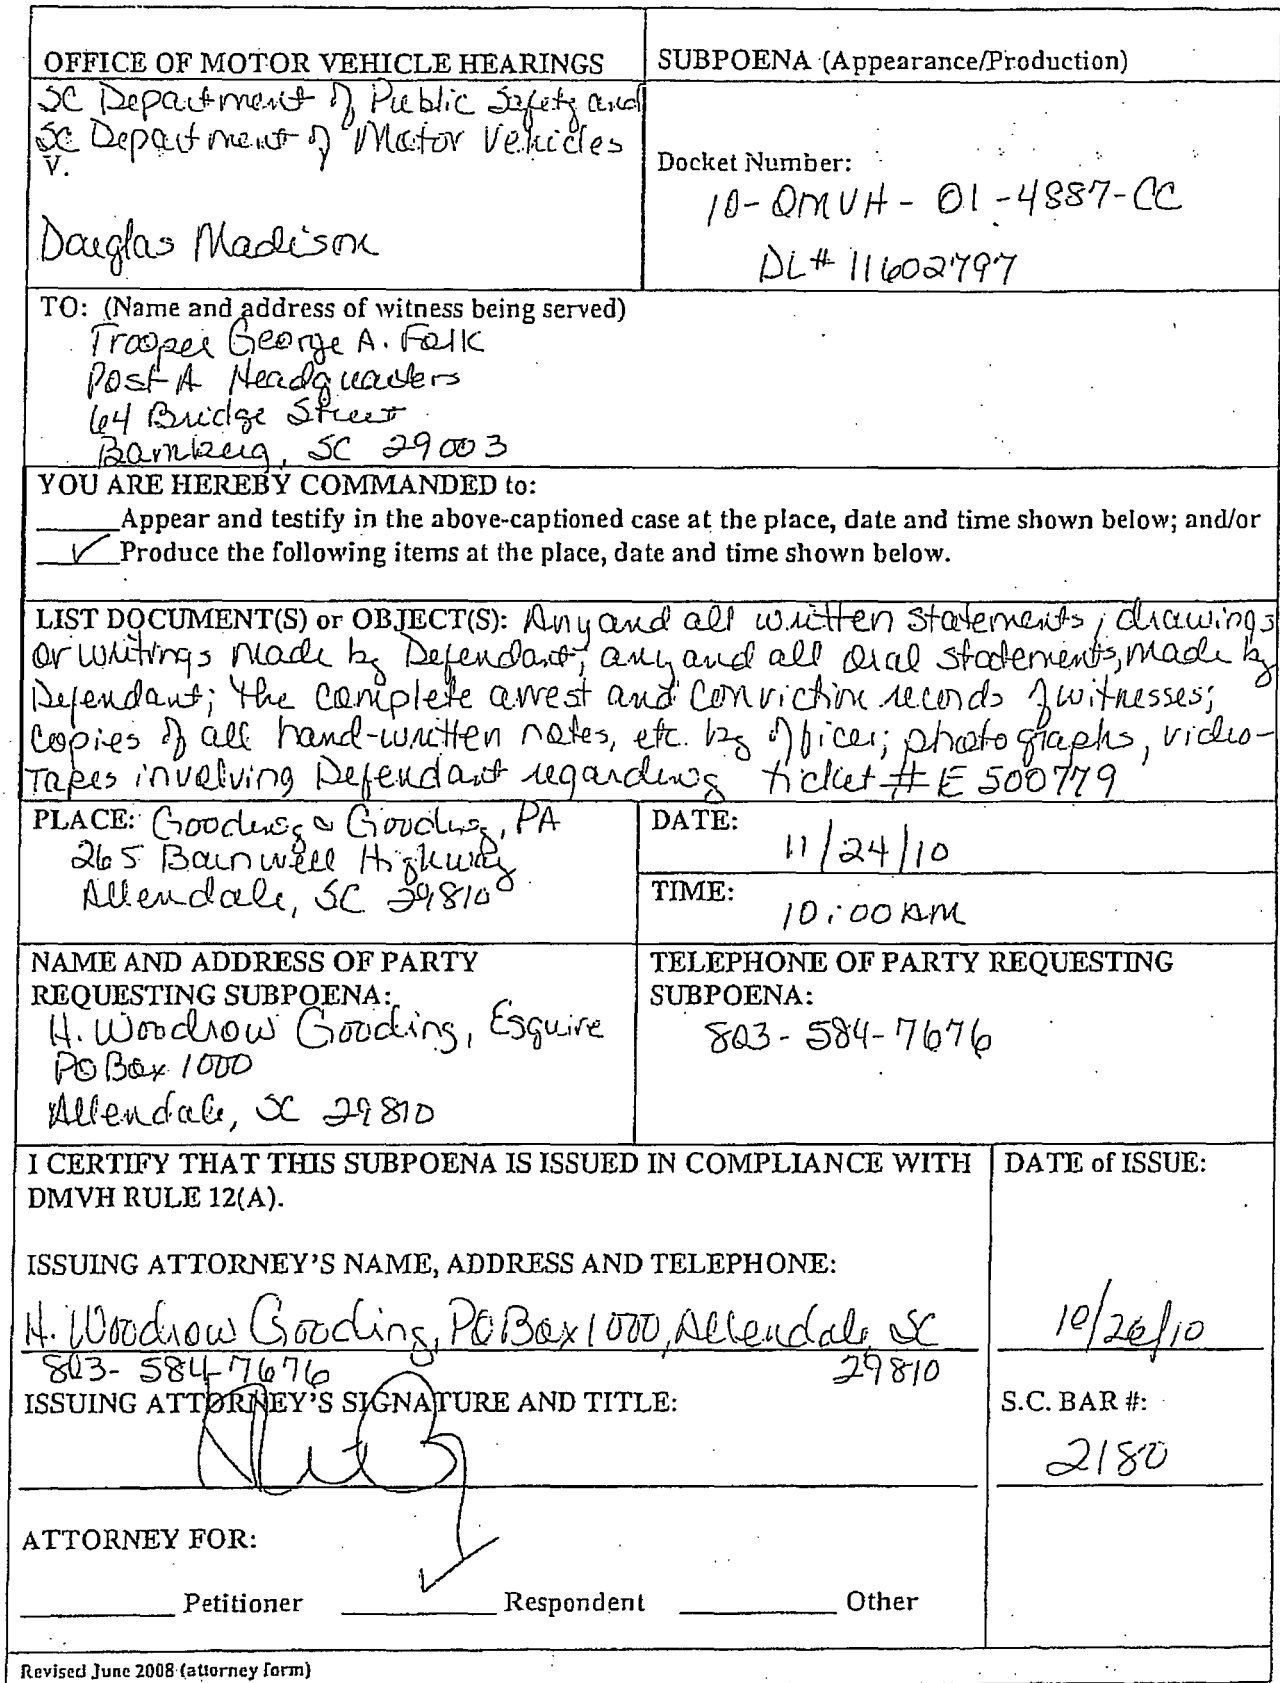 OFFICE OF MOTOR VEHICLE HEARINGS
SC Department of Public Safety and
SC Department of Motor Vehicles
v.
Douglas Madison
SUBPOENA (Appearance/Production)
Docket Number:
10-OMVH-01-4887-CC
DL# 11602797
TO: (Name and address of witness being served)
Trooper George A. Folk
Post A Headquarters
64 Bridge Street
Bamberg, SC 29003
YOU ARE HEREBY COMMANDED to:
_____Appear and testify in the above-captioned case at the place, date and time shown below; and/or
__✓__Produce the following items at the place, date and time shown below.
LIST DOCUMENT(S) or OBJECT(S): Any and all written statements, drawings
or writings made by Defendant; any and all oral statements, made by
Defendant; the complete arrest and conviction records of witnesses;
copies of all hand-written notes, etc. by officer; photographs, video-
tapes involving Defendant regarding ticket # E500779
PLACE: Gooding & Gooding, PA
265 Barnwell Highway
Allendale, SC 29810
DATE:
11/24/10
TIME:
10:00 AM
NAME AND ADDRESS OF PARTY
REQUESTING SUBPOENA:
H. Woodrow Gooding, Esquire
PO Box 1000
Allendale, SC 29810
TELEPHONE OF PARTY REQUESTING
SUBPOENA:
803-584-7676
I CERTIFY THAT THIS SUBPOENA IS ISSUED IN COMPLIANCE WITH
DMVH RULE 12(A).
ISSUING ATTORNEY'S NAME, ADDRESS AND TELEPHONE:
H. Woodrow Gooding, PO Box 1000, Allendale, SC
803-584-7676 29810
ISSUING ATTORNEY'S SIGNATURE AND TITLE:
DATE of ISSUE:
10/26/10
S.C. BAR #:
2180
ATTORNEY FOR:
_____ Petitioner __✓__ Respondent _____ Other
Revised June 2008 (attorney form)